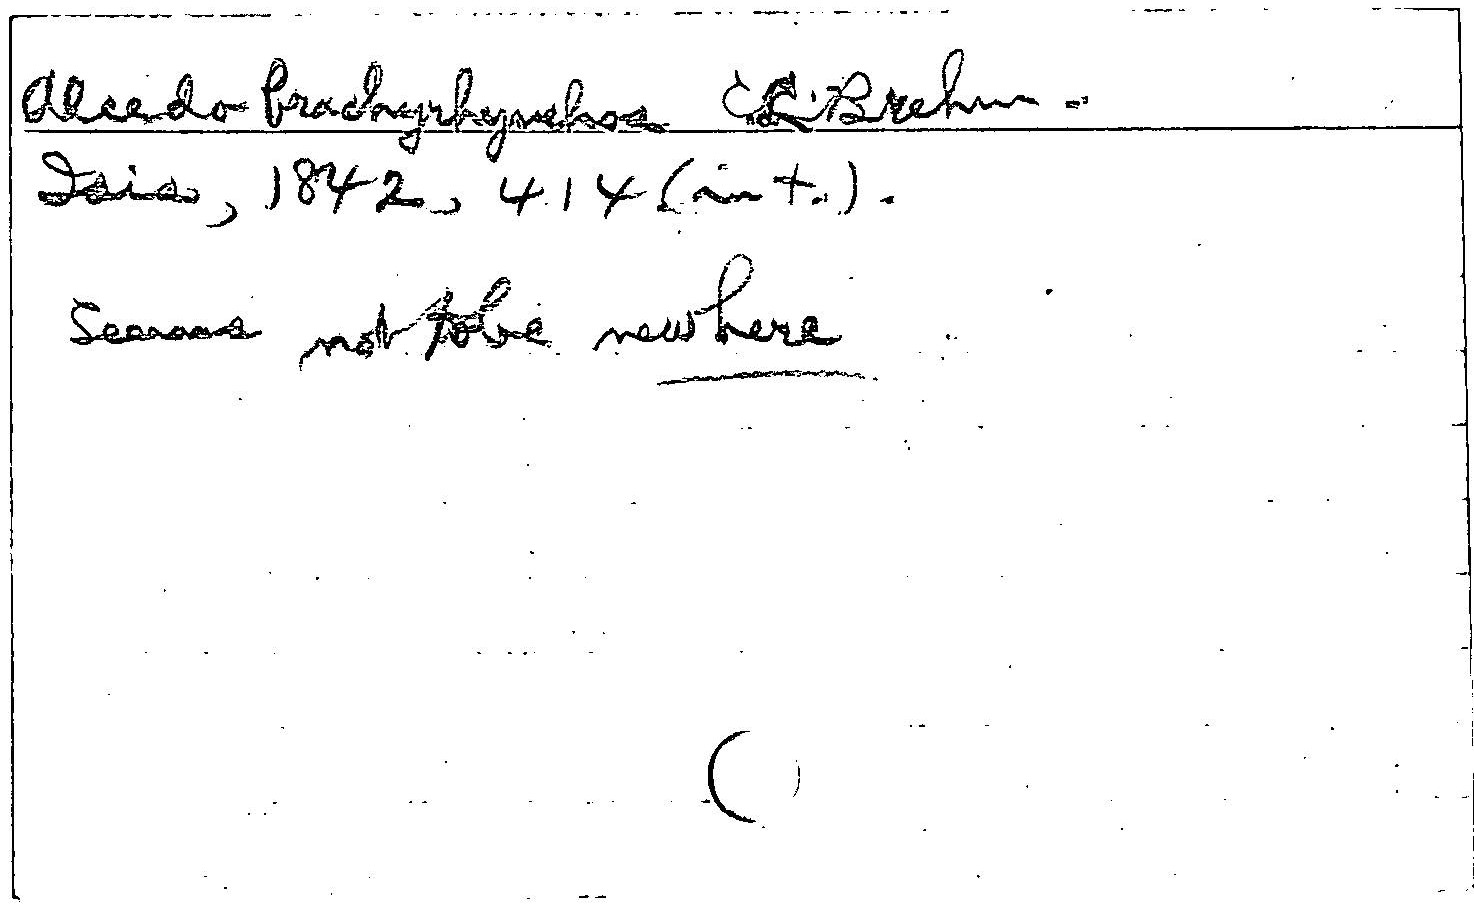 Alcedo brachyrhynchos C.L. Brehm.
Isis, 1842, 414 (in t.).
Seems not to be new here